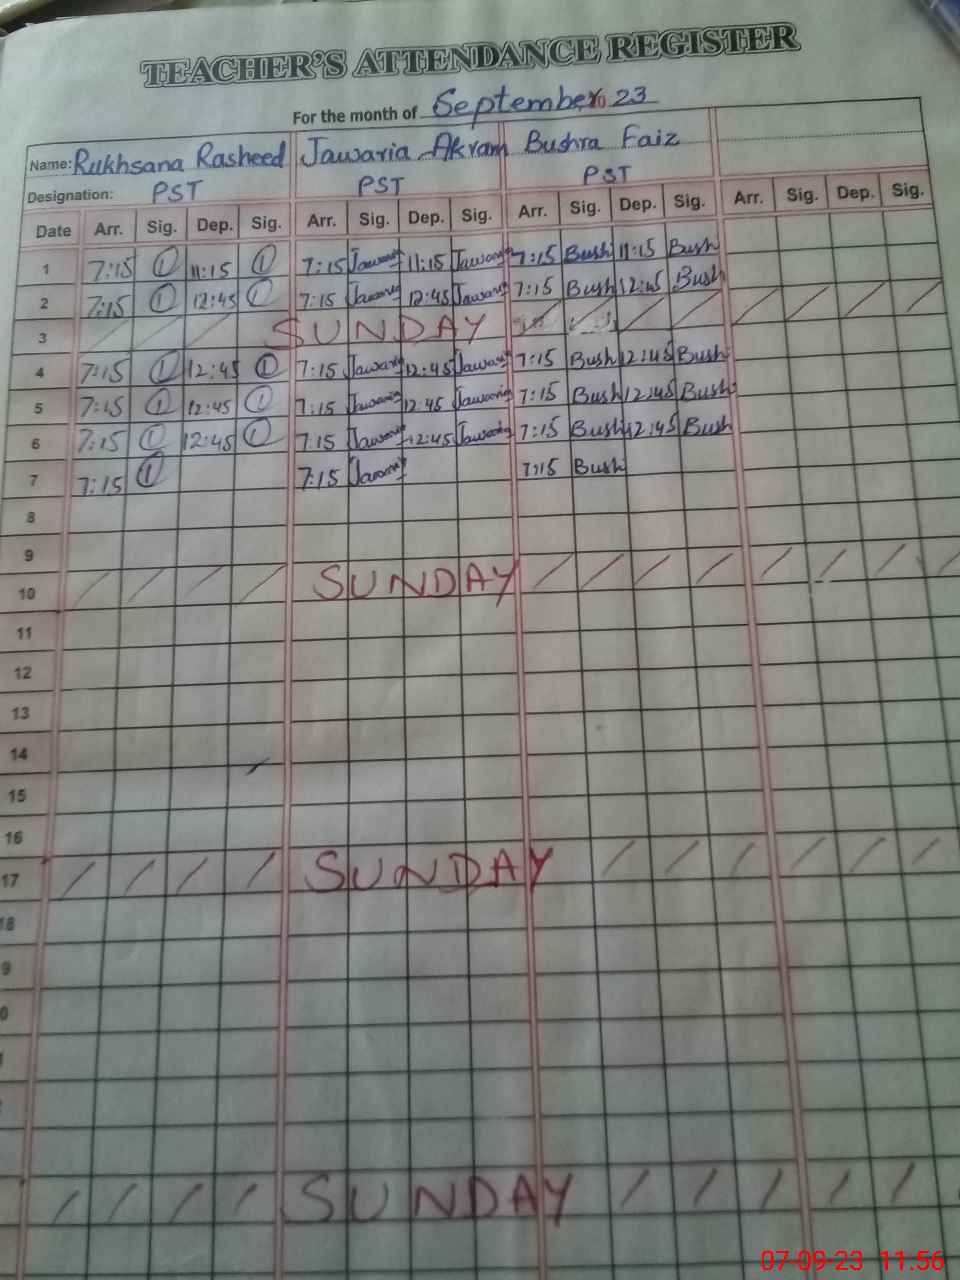 TEACHER'S ATTENDANCE REGISTER
For the month of September 23
Name: Rukhsana Rasheed Jawaria Akram Bushra Faiz
Designation: PST PST PST
Date Arr. Sig. Dep. Sig. Arr. Sig. Dep. Sig. Arr. Sig. Dep. Sig. Arr. Sig. Dep. Sig.
1 7:15 1 11:15 1 7:15 Jawaria 11:15 Jawaria 7:15 Bush 11:15 Bush
2 7:15 1 12:45 1 7:15 Jawaria 12:45 Jawaria 7:15 Bush 12:45 Bush
3 SUNDAY
4 7:15 1 12:45 1 7:15 Jawaria 12:45 Jawaria 7:15 Bush 12:45 Bush
5 7:15 1 12:45 1 7:15 Jawaria 12:45 Jawaria 7:15 Bush 12:45 Bush
6 7:15 1 12:45 1 7:15 Jawaria 12:45 Jawaria 7:15 Bush 12:45 Bush
7 7:15 1 7:15 Jawaria 7:15 Bush
8
9
10 SUNDAY
11
12
13
14
15
16
17 SUNDAY
18
9
0
SUNDAY
07-09-23 11:56